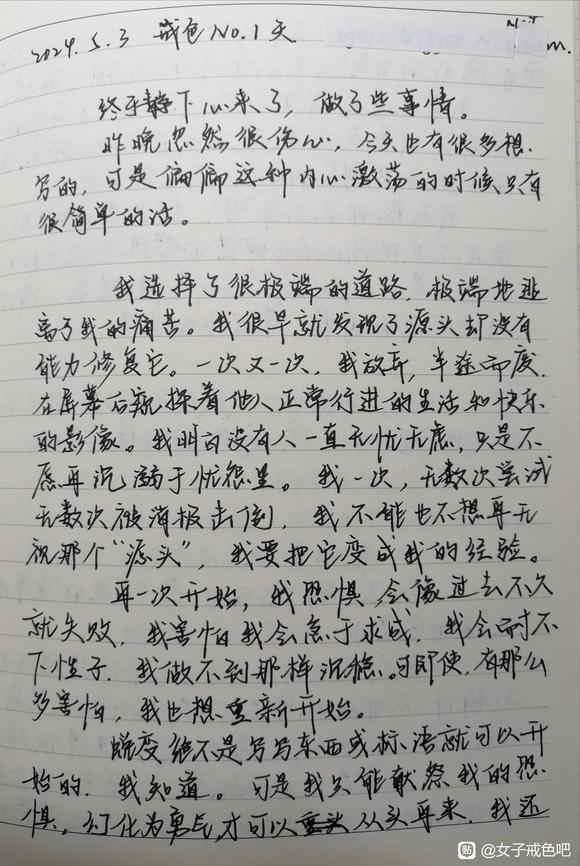 2024.5.3 戒色No.1天
终于静下心来了，做了些事情。
昨晚忽然很伤心，今天也有很多想
写的，可是偏偏这种内心激荡的时候，只有
很简单的话。
我选择了很极端的道路，极端地逃
离了我的痛苦。我很早就发现了源头却没有
能力修复它。一次又一次，我放弃，半途而废，
在屏幕后窥探着他人正常行进的生活和快乐
的影像。我明白没有人一直无忧无虑，只是不
愿再沉溺于忧愁里。我一次，无数次尝试
无数次被消极击倒，我不能也不想再无
视那个“源头”，我要把它变成我的经验。
再一次开始，我恐惧，会像过去不久
就失败，我害怕我会急于求成，我会耐不
下性子，我做不到那样沉稳。可即使，有那么
多害怕，我也想重新开始。
蜕变绝不是写写东西或标语就可以开
始的，我知道。可是我只能献祭我的恐
惧，幻化为勇气，才可以从头再来，我还
贴 @女子戒色吧